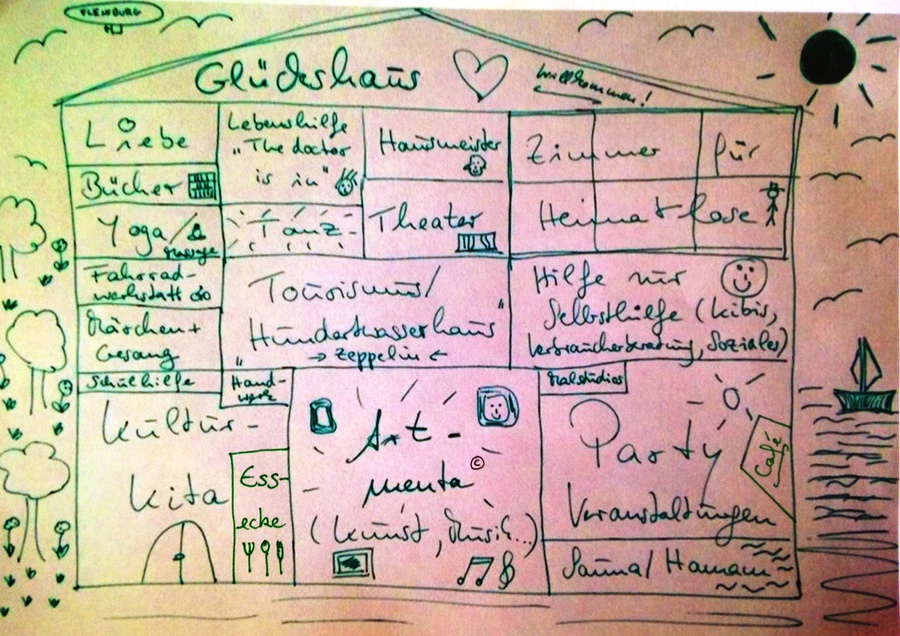 FLENSBURG
Glückshaus
willkommen!
Liebe
Lebenshilfe
"The doctor
is in"
Hausmeister
Zimmer für
Bücher
Yoga/
Massage
Tanz-
Theater
Heimatlose
Fahrrad-
werkstatt
Tourismus/
"Hundertwasserhaus"
→ Zeppelin ←
Hilfe zur
Selbsthilfe (Kibis,
Verbraucherberatung, Soziales)
Märchen +
Gesang
Schulhilfe
Hand-
werk
Malstudios
Kultur-
Kita
Ess-
ecke
Art-
menta ©
(Kunst, Musik...)
Party
Veranstaltungen
Café
Sauna/ Hamam